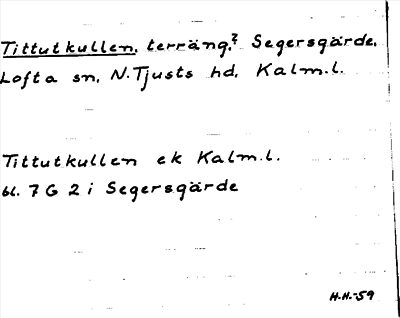 Tittutkullen, terräng? Segersgärde,
Lofta sn, N. Tjusts hd, Kalm.l.
Tittutkullen ek Kalm.l.
bl. 7 G 2 i Segersgärde
H.H.-59